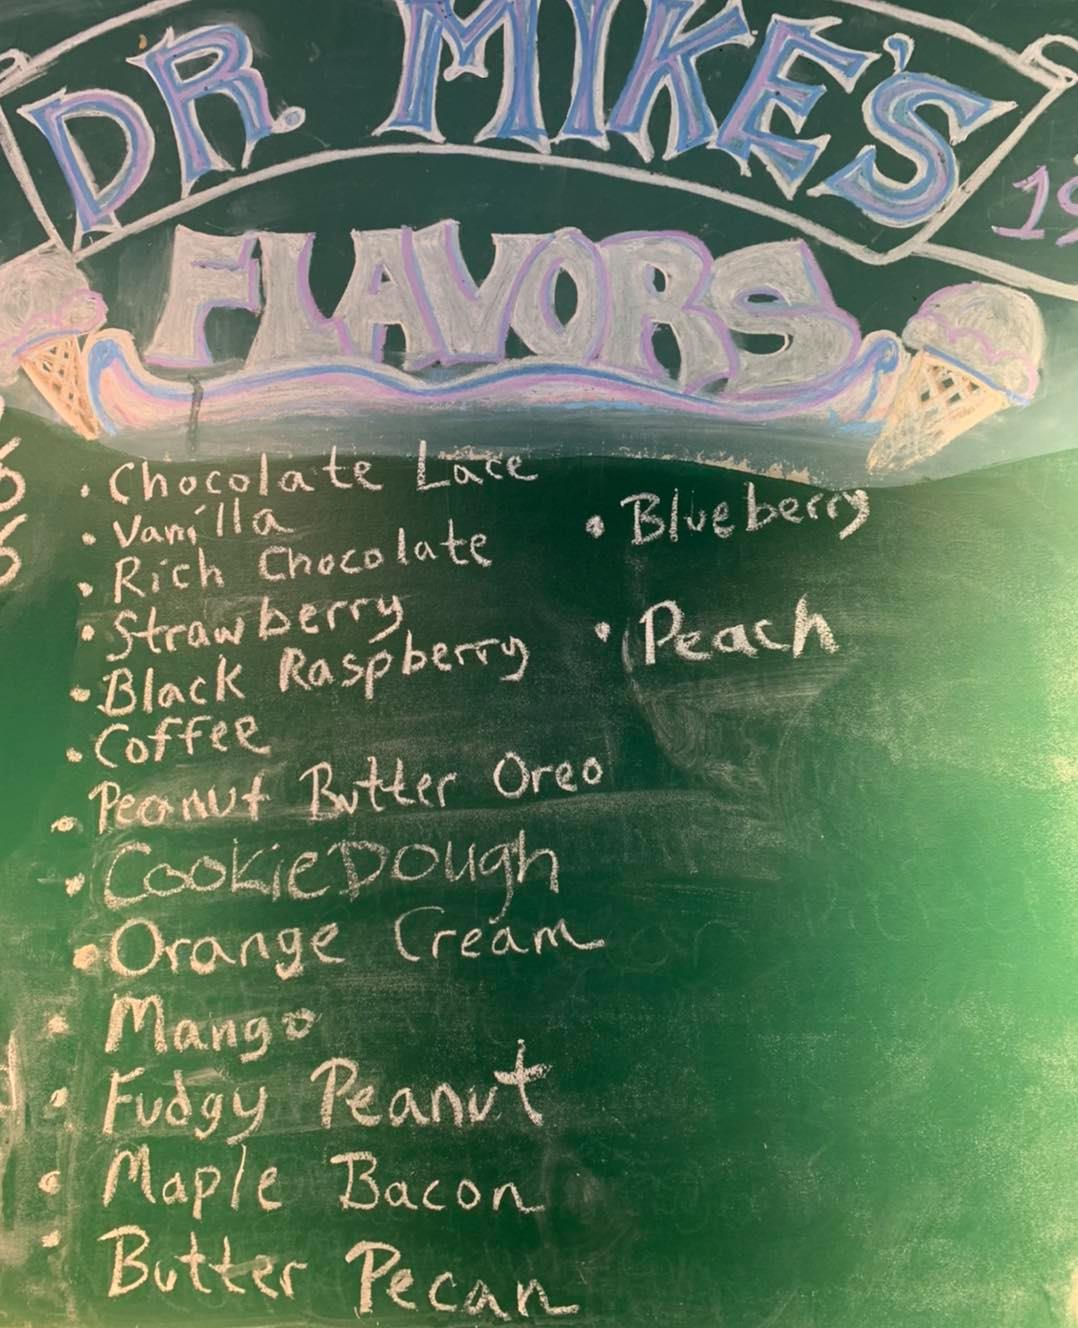 DR. MIKE'S
FLAVORS
• Chocolate Lace
• Vanilla
• Rich Chocolate
• Strawberry
• Black Raspberry
• Coffee
• Peanut Butter Oreo
• Cookie Dough
• Orange Cream
• Mango
• Fudgy Peanut
• Maple Bacon
• Butter Pecan
• Blueberry
• Peach